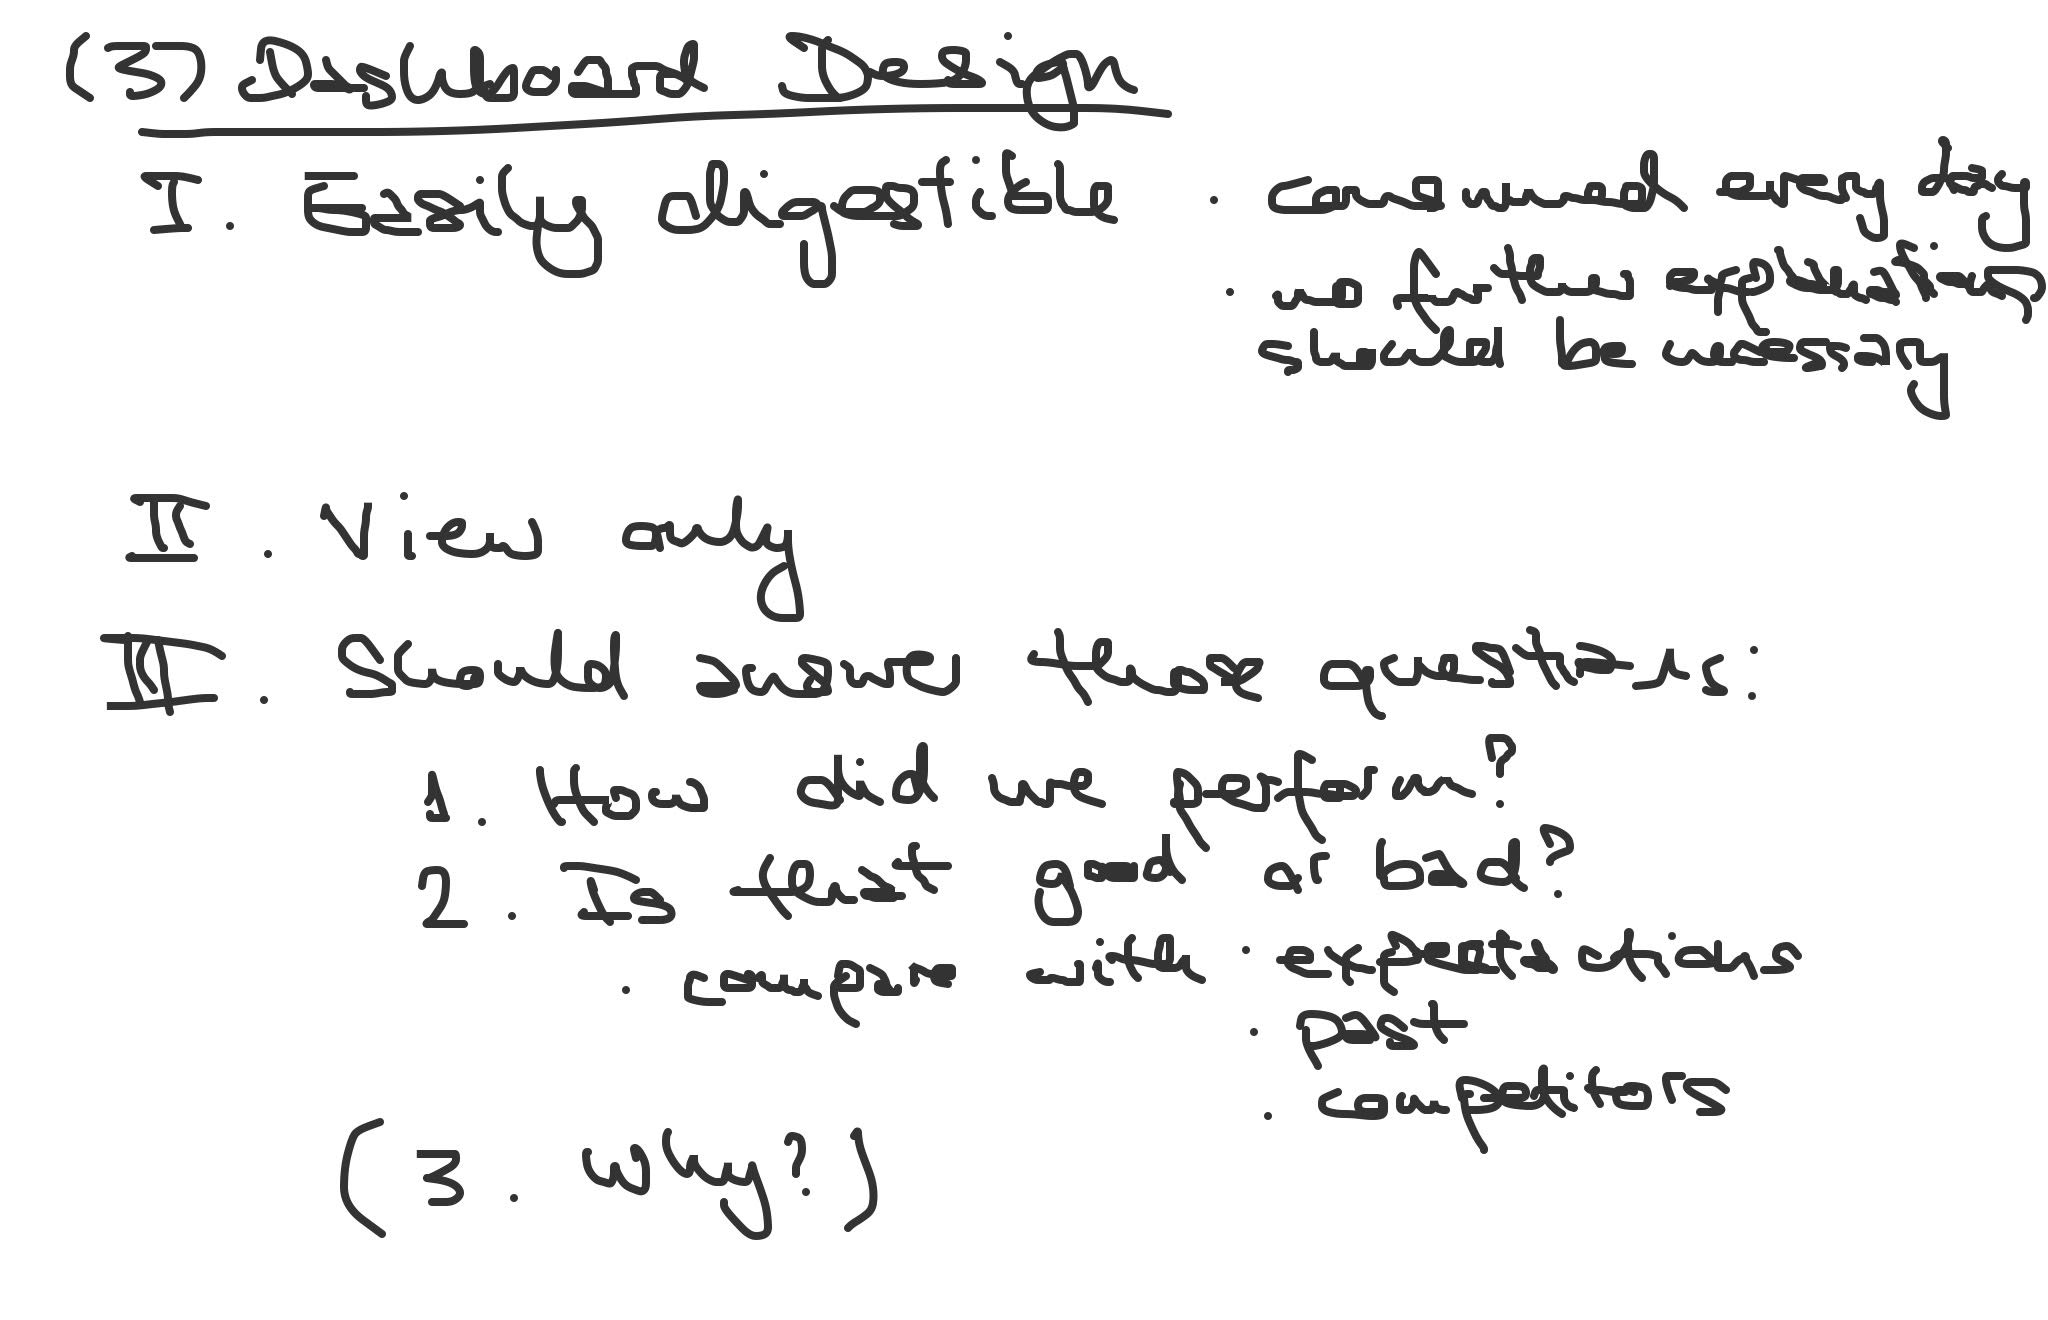 (3) Dashboard Design
I. Easily digestible · consumed every day
· no further explanations
should be necessary
II. View only
III. Should answer those questions:
1. How did we perform?
2. Is that good or bad?
· compare with · expectations
· past
· competitors
(3. Why?)